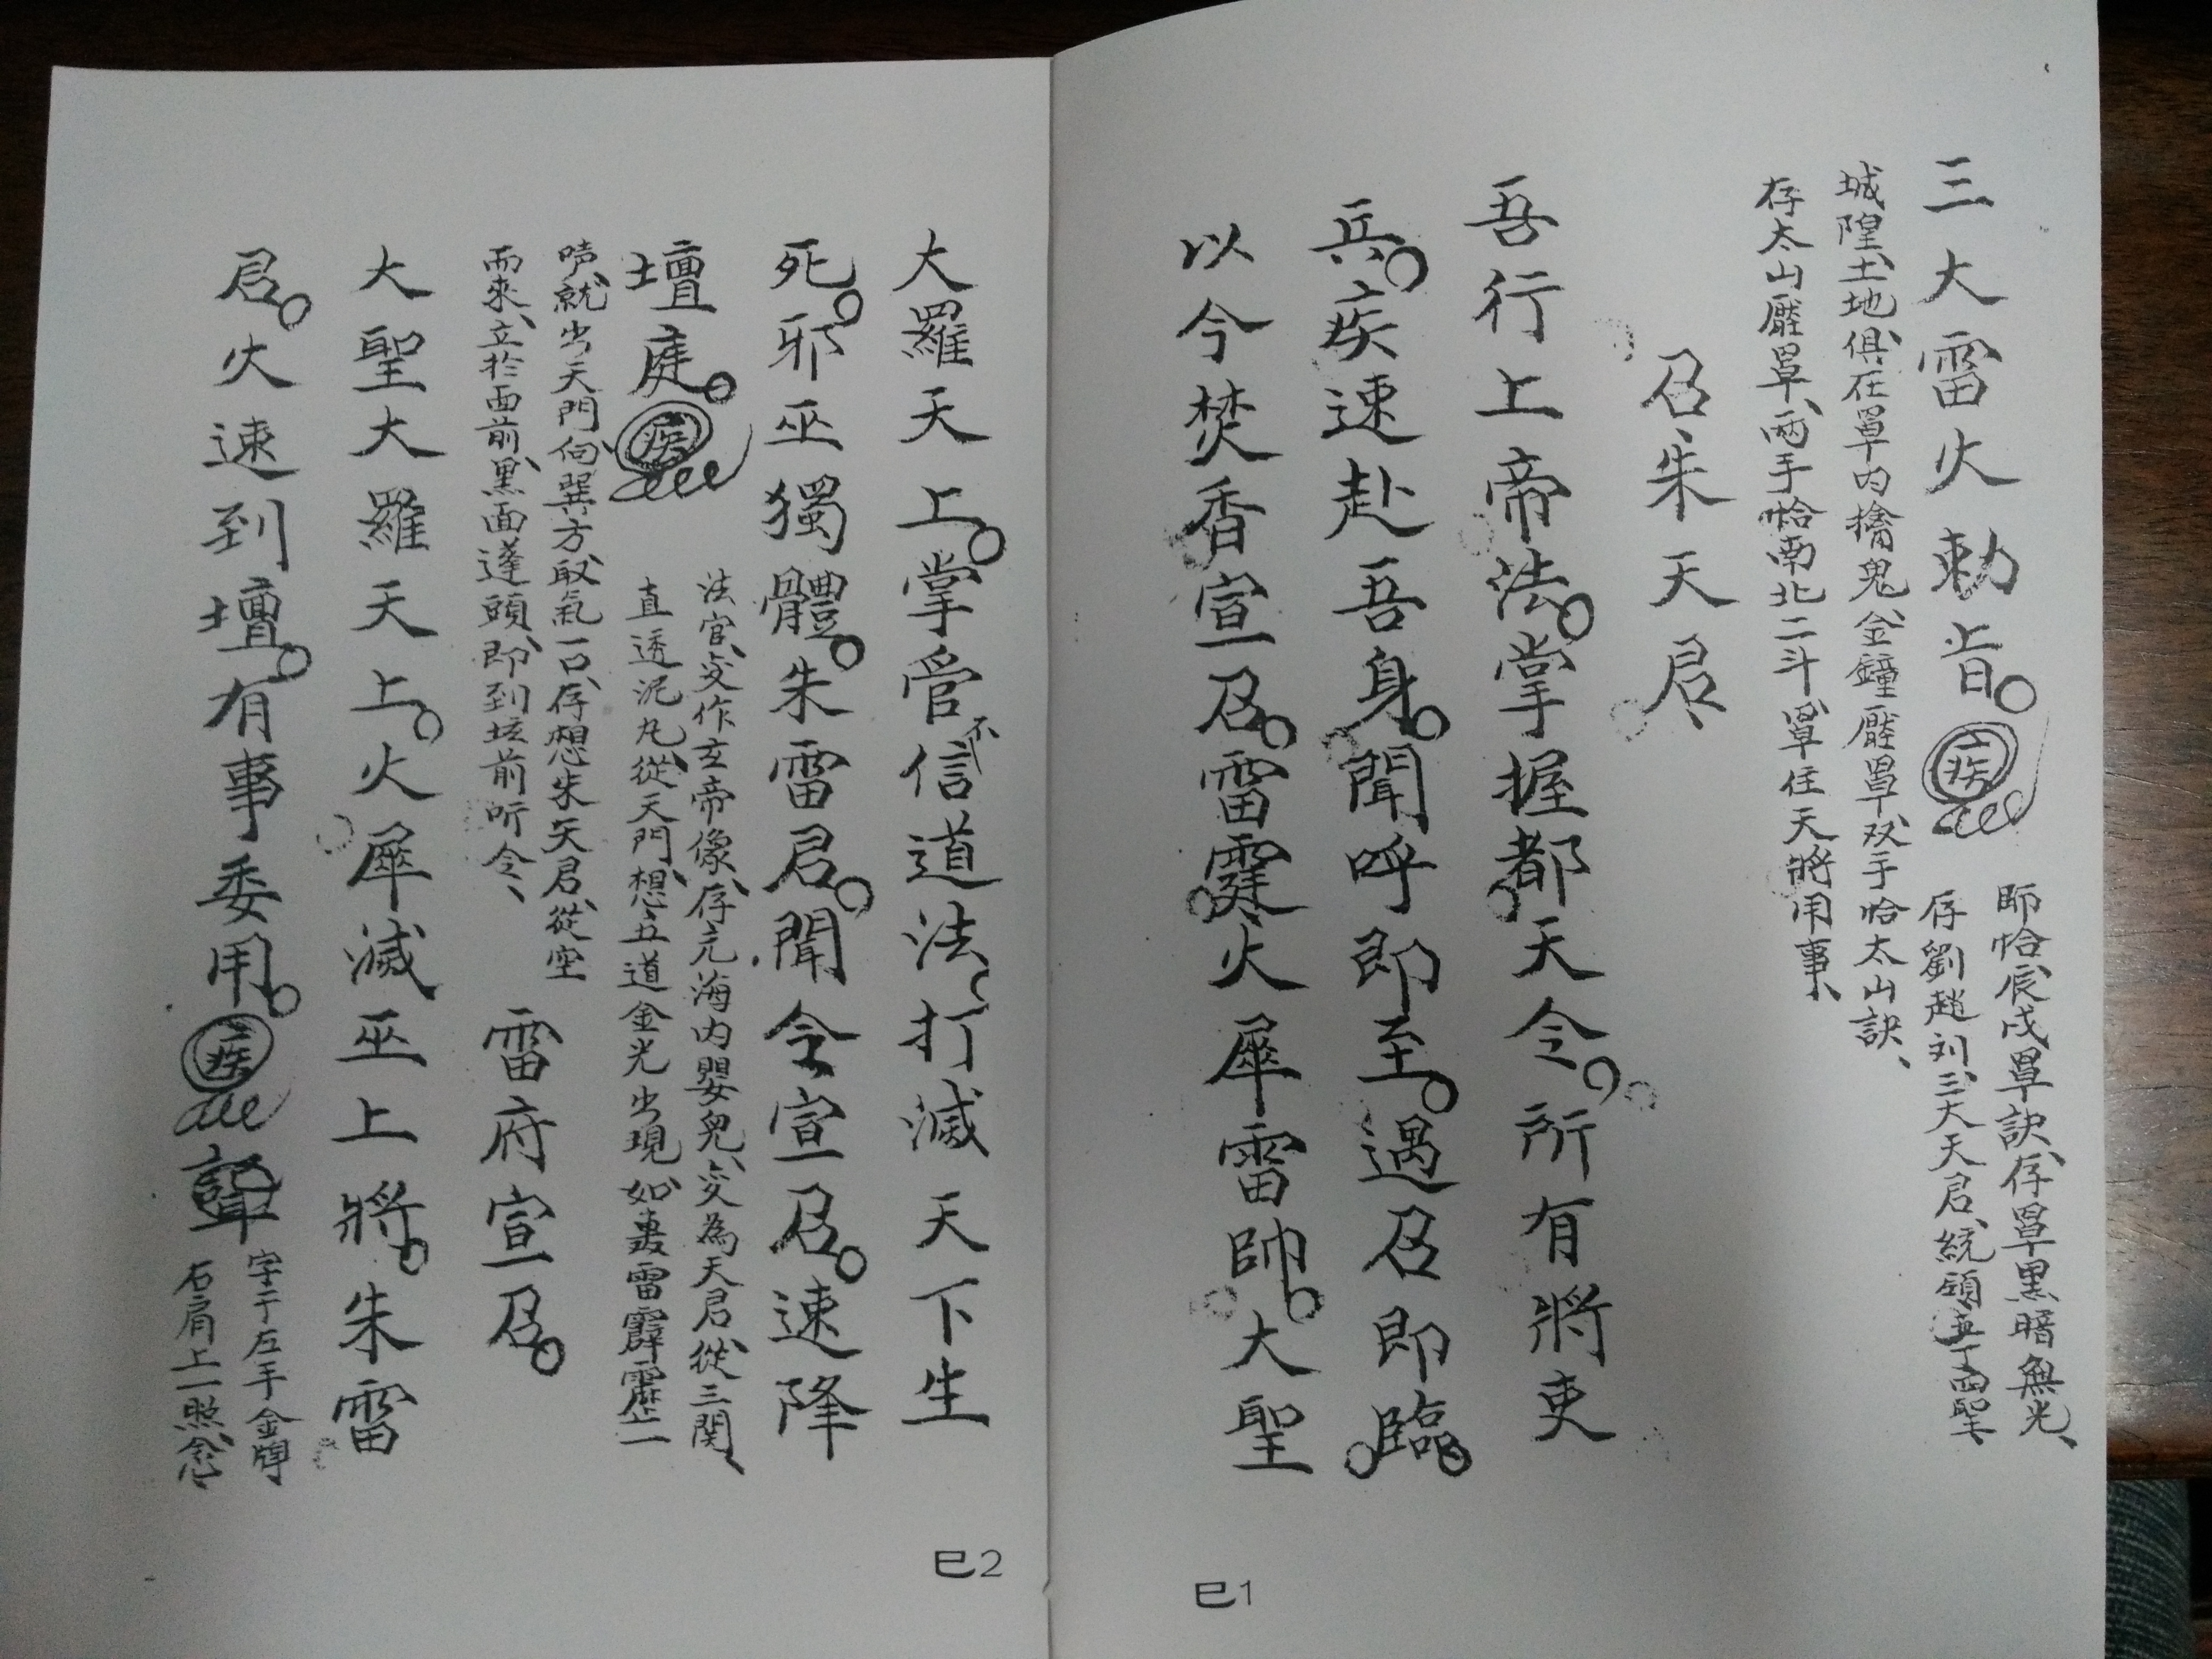 三大雷火勅旨。疾
即恰辰戌罩訣、存罩黑暗無光、
存劉趙刘三大天君、統領
城隍土地俱在罩內擒鬼、金鐘壓罩、双手恰太山訣、
存太山壓罩、兩手恰南北二斗罩住天將用事、
召朱天君、
吾行上帝法。掌握都天令。所有將吏
兵。疾速赴吾身。聞呼即至。遇召即臨。
以今焚香宣召。雷霆火犀雷帥。大聖
巳1
大羅天上。掌管不信道法、打滅天下生
死。邪巫獨體。朱雷君。聞令宣召。速降
壇庭。疾
法官変作玄帝像、存元海內嬰兒、変為天君、從三関、
直透泥丸、從天門、想五道金光出現、如轟雷霹靂一
声、就出天門向巽方取氣一口、存想朱天君、從空
而來、立於面前、黑面蓬頭、即到坛前听令、
雷府宣召。
大聖大羅天上。火犀滅巫上將。朱雷
君。火速到壇。有事委用。疾
字于左手金牌
右肩上一照、念、
巳2